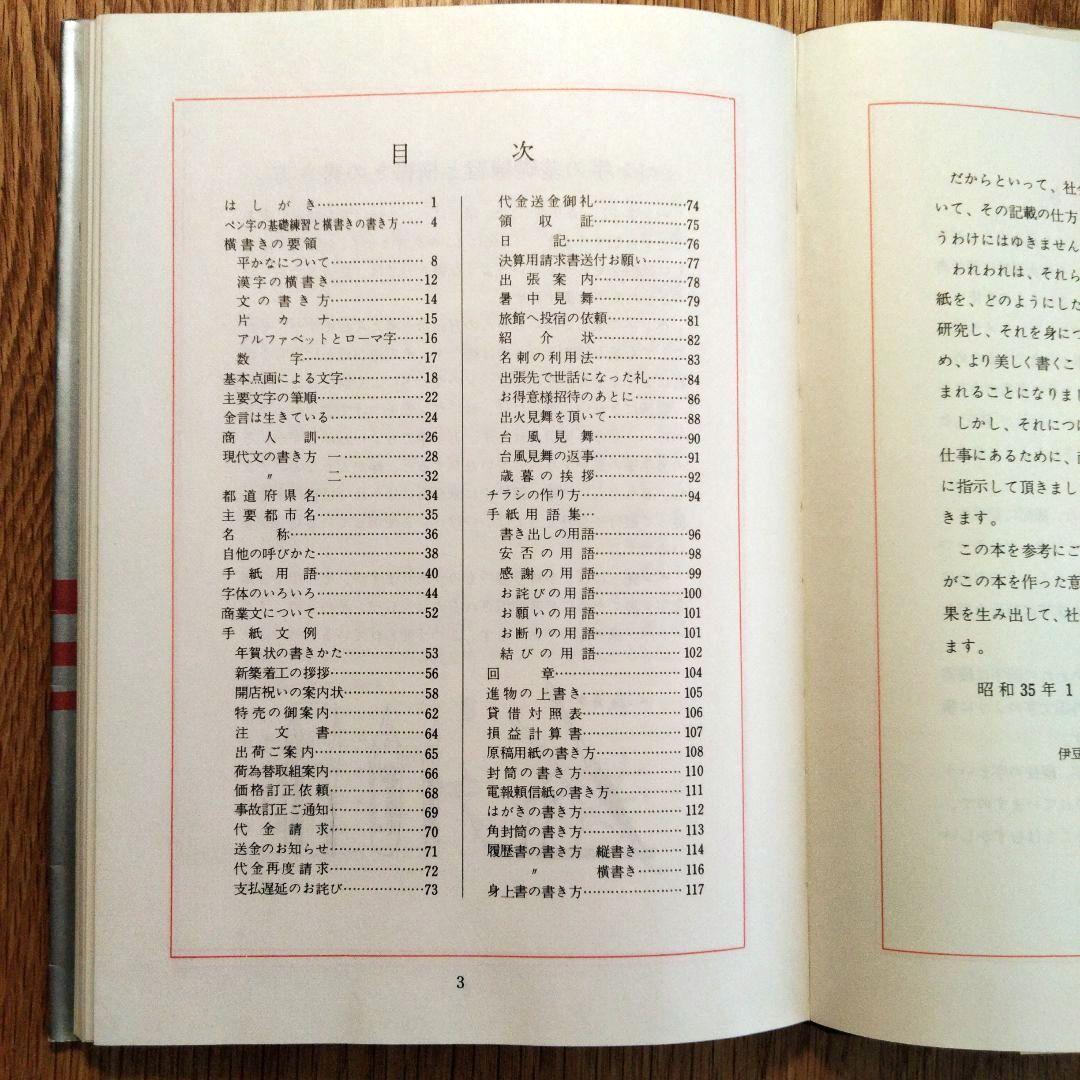 目次
はしがき…………………1
ペン字の基礎練習と横書きの書き方……4
横書きの要領
平かなについて………………8
漢字の横書き………………12
文の書き方………………14
片カナ………………15
アルファベットとローマ字……16
数字…………………17
基本点画による文字……………18
主要文字の筆順………………22
金言は生きている………………24
商人訓………………26
現代文の書き方 一……………28
〃 二……………32
都道府県名…………………34
主要都市名…………………35
名称…………………36
自他の呼びかた…………………38
手紙用語…………………40
字体のいろいろ…………………44
商業文について…………………52
手紙文例
年賀状の書きかた……………53
新築着工の挨拶………………56
開店祝いの案内状……………58
特売の御案内………………62
注文書………………64
出荷ご案内…………………65
荷為替取組案内………………66
価格訂正依頼………………68
事故訂正ご通知………………69
代金請求………………70
送金のお知らせ………………71
代金再度請求………………72
支払遅延のお詫び……………73
代金送金御礼…………………74
領収証…………………75
日記…………………76
決算用請求書送付お願い………77
出張案内…………………78
暑中見舞…………………79
旅館へ投宿の依頼………………81
紹介状…………………82
名刺の利用法…………………83
出張先で世話になった礼………84
お得意様招待のあとに…………86
出火見舞を頂いて………………88
台風見舞…………………90
台風見舞の返事…………………91
歳暮の挨拶…………………92
チラシの作り方…………………94
手紙用語集…
書き出しの用語…………………96
安否の用語…………………98
感謝の用語…………………99
お詫びの用語…………………100
お願いの用語…………………101
お断りの用語…………………101
結びの用語…………………102
回章…………………104
進物の上書き…………………105
貸借対照表…………………106
損益計算書…………………107
原稿用紙の書き方………………108
封筒の書き方…………………110
電報頼信紙の書き方……………111
はがきの書き方…………………112
角封筒の書き方…………………113
履歴書の書き方 縦書き………114
〃 横書き………116
身上書の書き方…………………117
3
だからといって、社
いて、その記載の仕方
うわけにはゆきません
われわれは、それら
紙を、どのようにした
研究し、それを身に
め、より美しく書くこ
まれることになりまし
しかし、それにつ
仕事にあるために、
に指示して頂きまし
きます。
この本を参考にご
がこの本を作った意
果を生み出して、社
ます。
昭和35年1
伊豆